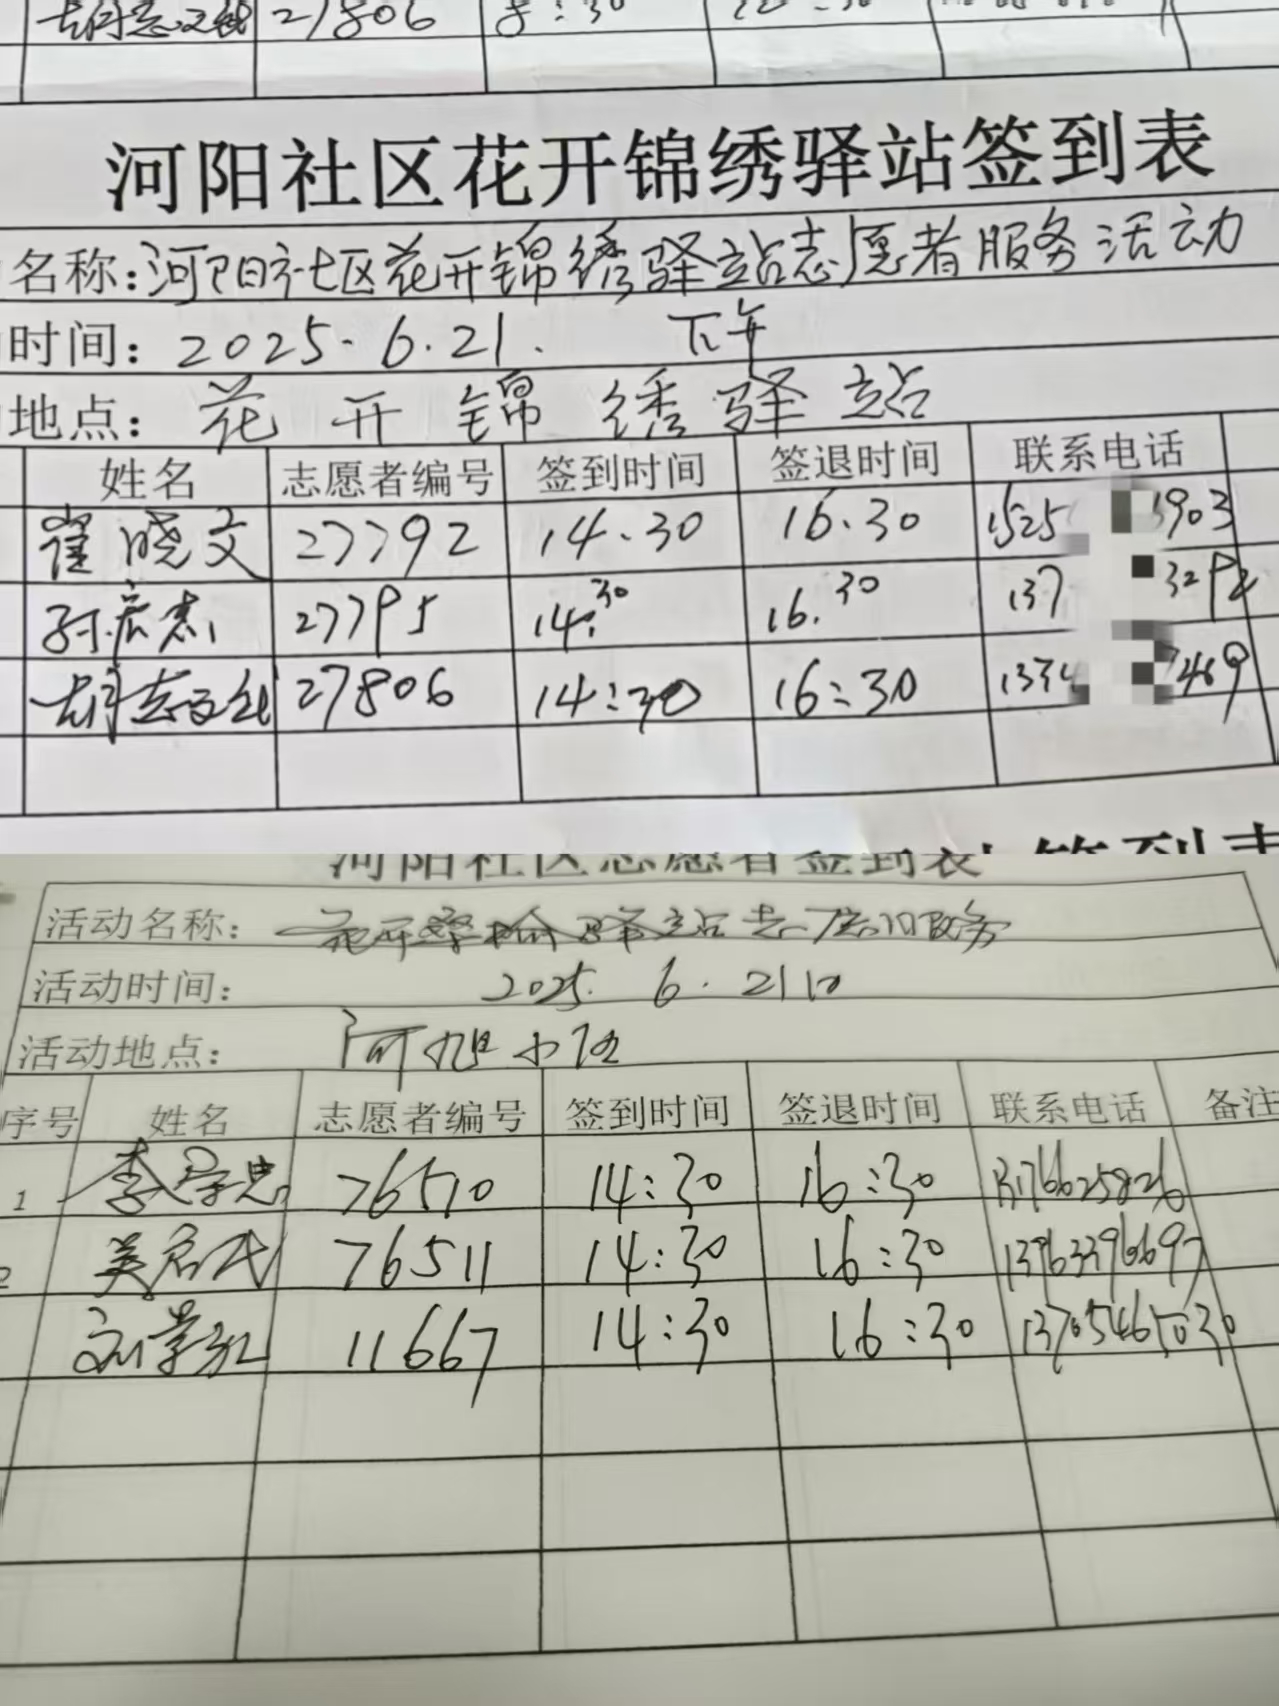 27806 8:30
河阳社区花开锦绣驿站签到表
名称:河阳社区花开锦绣驿站志愿者服务活动
时间: 2025.6.21. 下午
地点: 花开锦绣驿站
姓名 志愿者编号 签到时间 签退时间 联系电话
崔晓文 27792 14.30 16.30 1525 3903
孙宏杰 27795 14:30 16.30 137 3292
27806 14:30 16:30 1334 7469
河阳社区志愿者签到表
活动名称: 花开桑榆驿站志愿服务
活动时间: 2025. 6. 21日
活动地点: 河旭小区
序号 姓名 志愿者编号 签到时间 签退时间 联系电话 备注
1 李学忠 76510 14:30 16:30
2 76511 14:30 16:30 13963396697
11667 14:30 16:30 13705465030